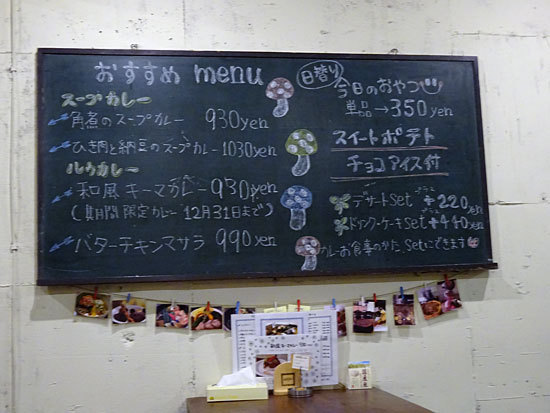 おすすめ menu
スープカレー
角煮のスープカレー 930yen
ひき肉と納豆のスープカレー 1030yen
ルウカレー
和展キーマカレー 930yen
(期間限定カレー 12月31日まで)
バターチキンマサラ 990yen
日替り
今日のおやつ
単品→350yen
スイートポテト
チョコアイス付
デザートset プラス +220yen
ドリンク・ケーキset プラス +440yen
カレーお食事のかた、setにできます